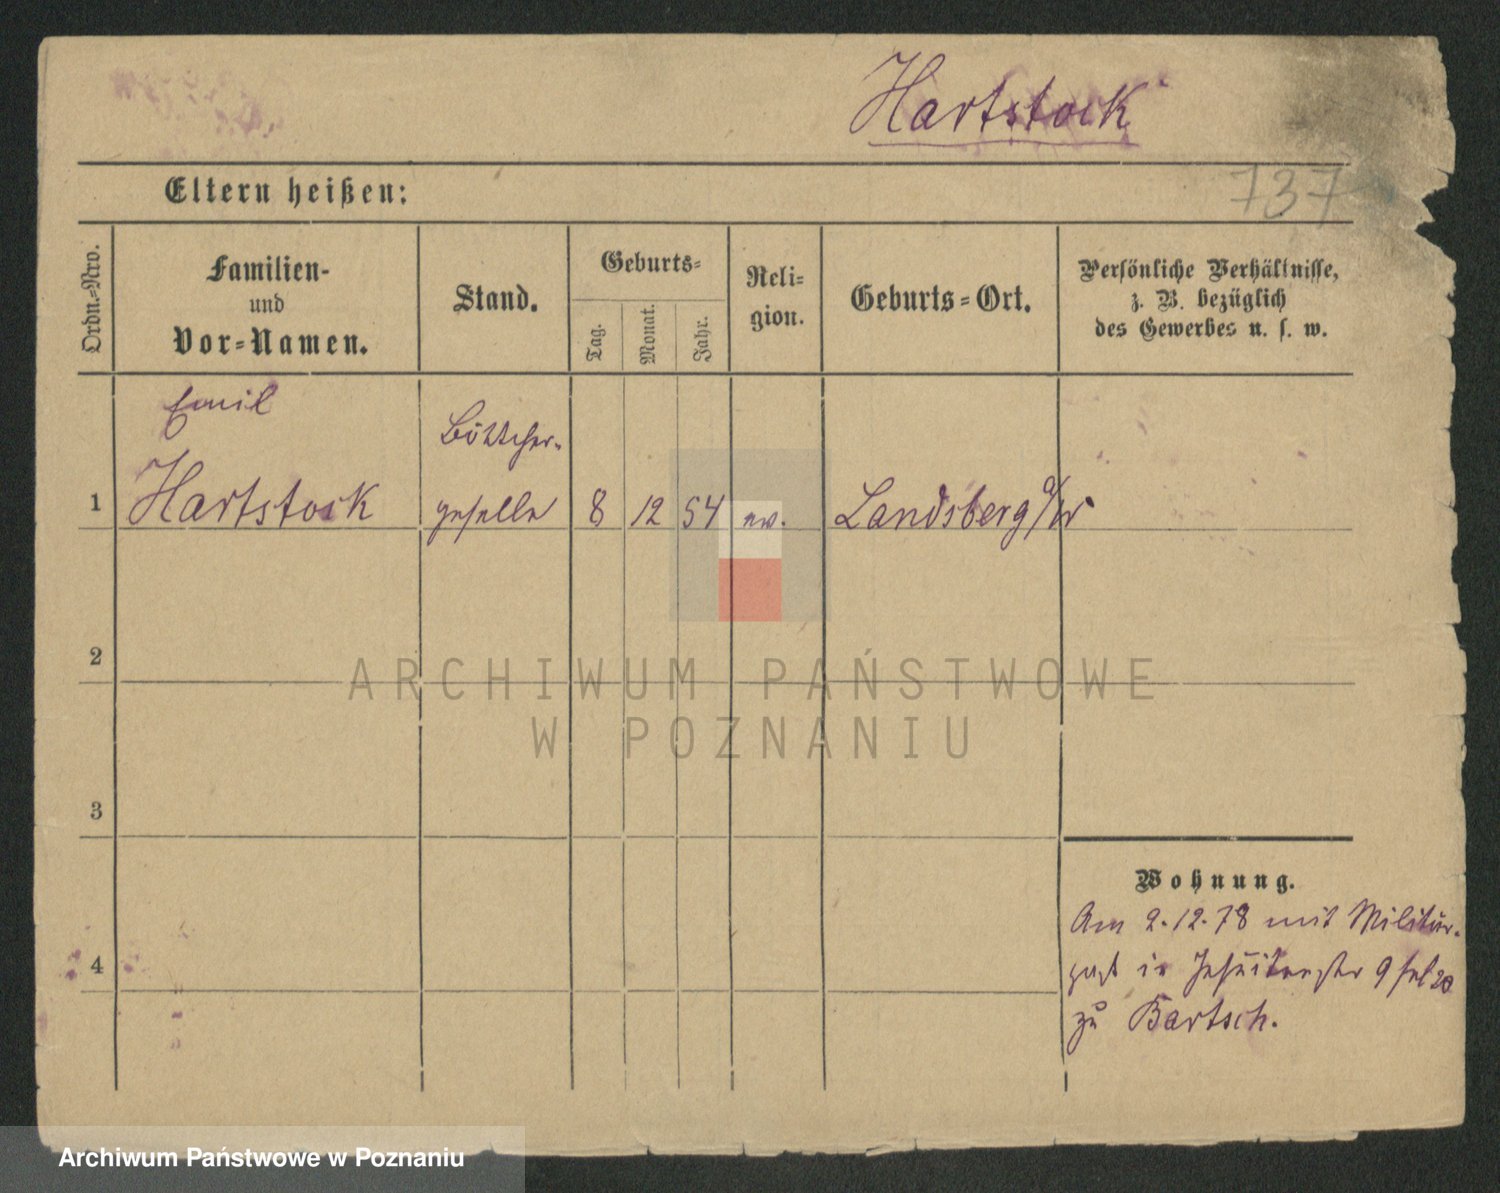 Hartstock
Eltern heißen:
737
Ordn.-Nro.
Familien-
und
Vor-Namen.
Stand.
Geburts-
Tag.
Monat.
Jahr.
Reli-
gion.
Geburts-Ort.
Persönliche Verhältnisse,
z. B. bezüglich
des Gewerbes u. s. w.
Emil
Böttcher-
1 Hartstock geselle 8 12 54 ev. Landsberg a/W
2
ARCHIWUM PAŃSTWOWE
W POZNANIU
3
Wohnung.
Am 2.12.78 mit Militär-
4
paß in Jesuitenstr 9
zu Bartsch.
Archiwum Państwowe w Poznaniu